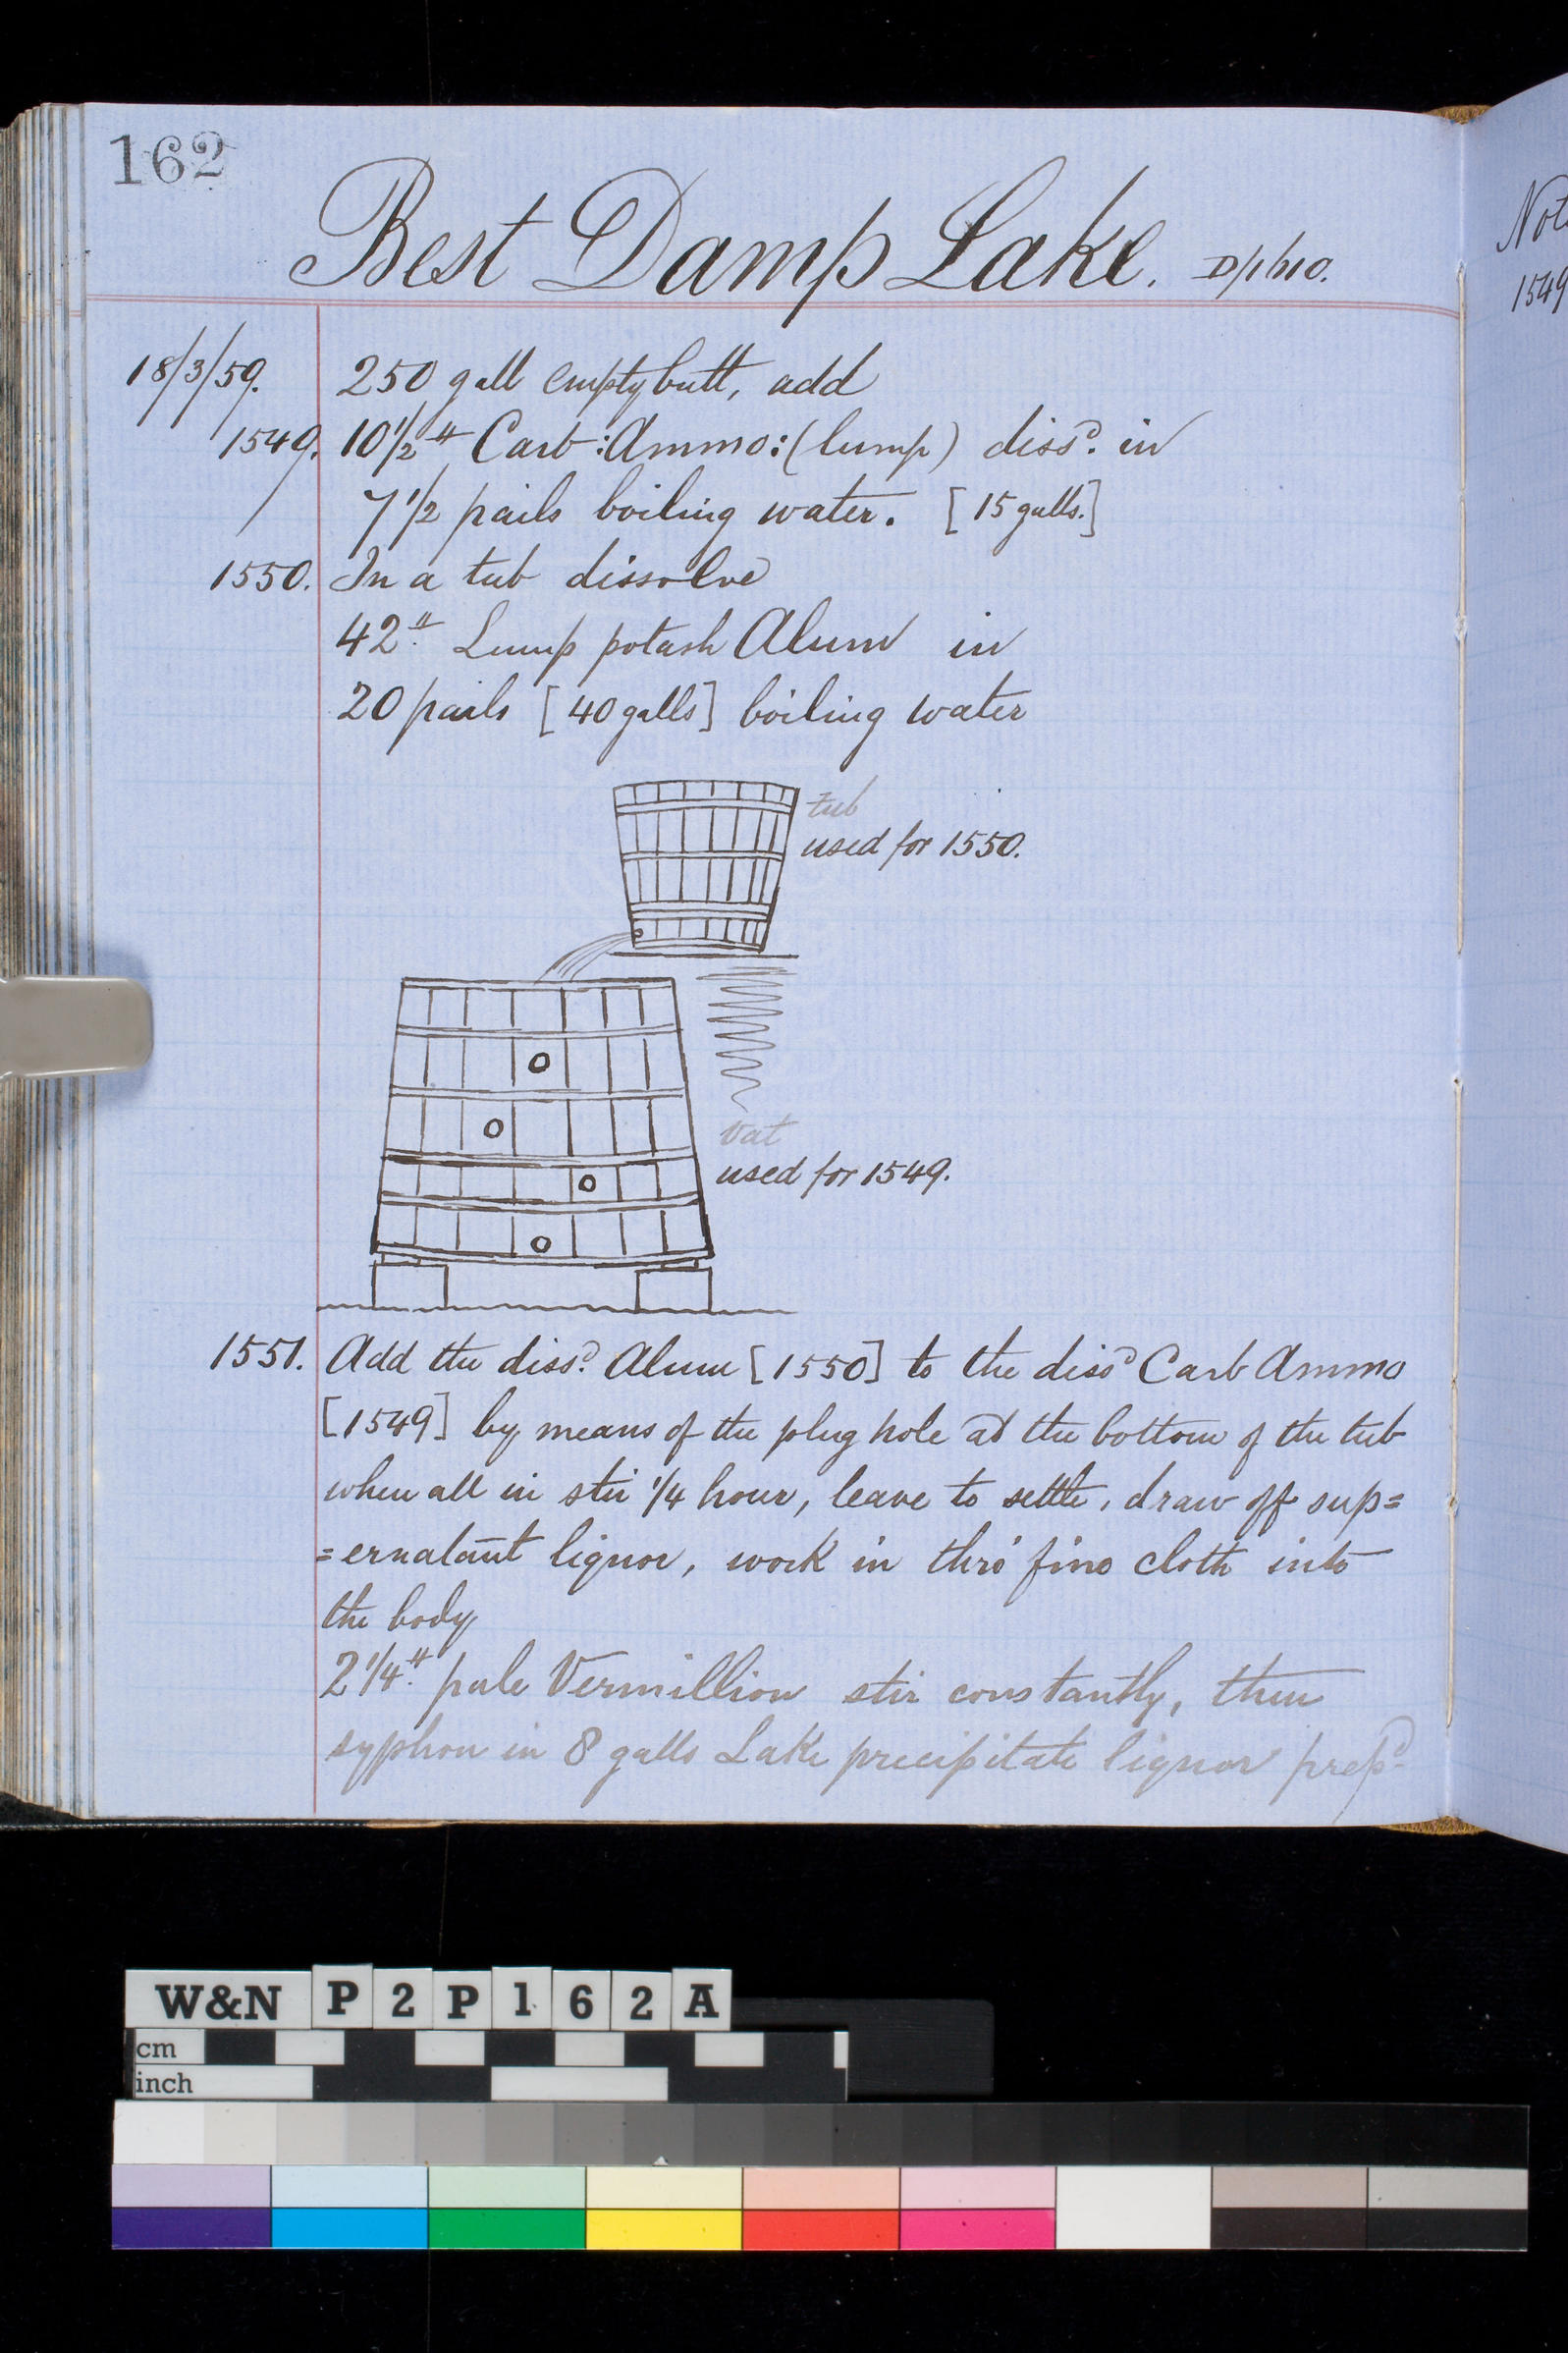 162
Best Damp Lake. D/1/610.
18/3/59. 250 gall empty butt, add
1549. 10 1/2 # Carb: Ammo: (lump) dissd. in
7 1/2 pails boiling water. [15 galls.]
1550. In a tub dissolve
42 # Lump potash Alum in
20 pails [40 galls] boiling water
tub
used for 1550.
vat
used for 1549.
1551. Add the dissd. Alum [1550] to the dissd Carb Ammo
[1549] by means of the plug hole at the bottom of the tub
when all in stir 1/4 hour, leave to settle, draw off sup=
=ernatant liquor, work in thro' fine cloth into
the body
2 1/4 # pale Vermillion stir constantly, then
syphon in 8 galls Lake precipitate liquor prepd
Not
1549
W&N P2P162A
cm
inch